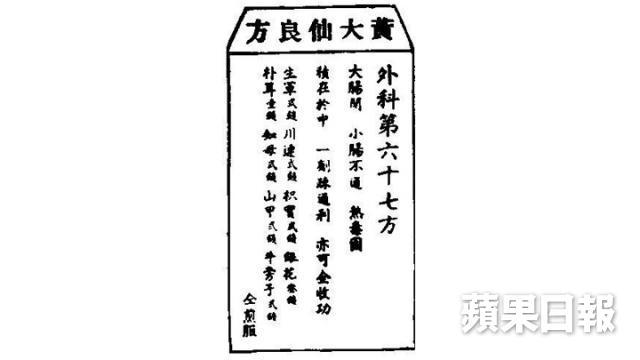 黃大仙良方
外科第六十七方
大腸閉 小腸不通 熱毒圍
積在於中 一劑疎通利 亦可全收功
生軍弍錢 川連弍錢 枳實弍錢 銀花叁錢
朴 壹錢 知母弍錢 山甲弍錢 牛蒡子弍錢
仝煎服
蘋果日報